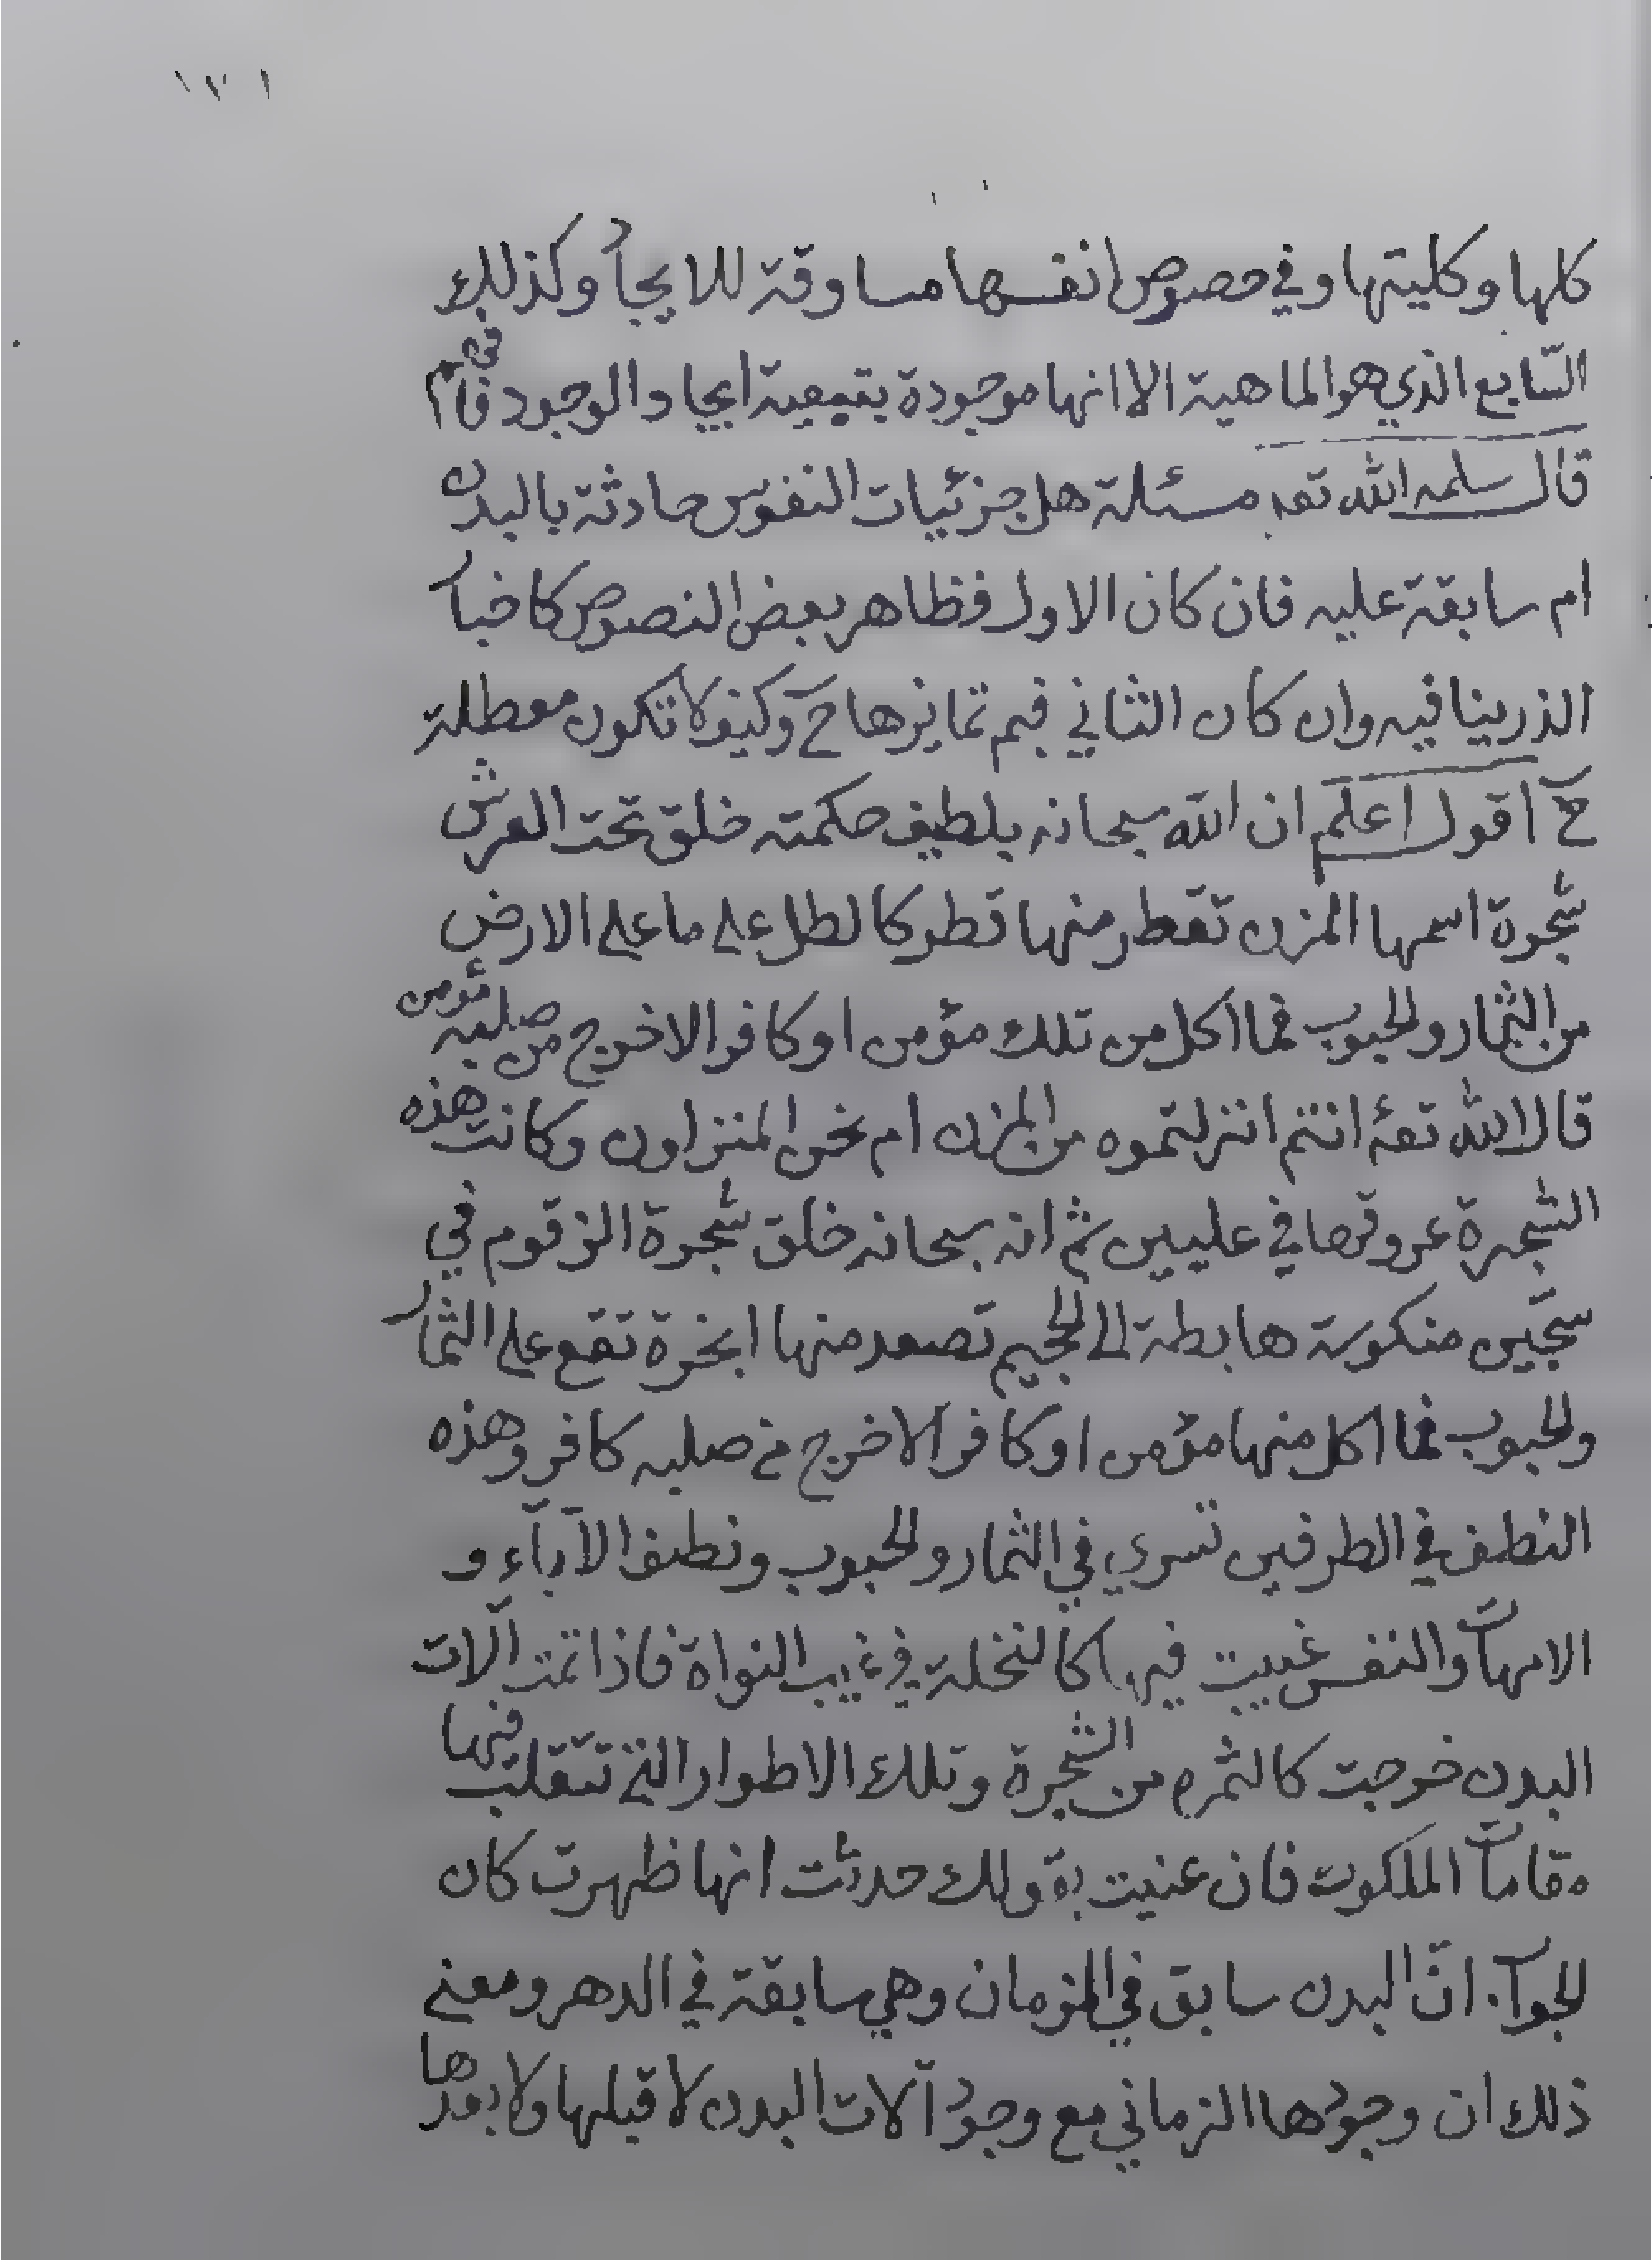 ١٧١
كلها وكليتها وفي خصوص انفسها مساوقة للايجاد وكذلك
السّابع الذي هو الماهية الا انها موجودة بتبعية ايجاد الوجود فافهم
قال سلمه الله تعه مسئلة هل جزئيات النفوس حادثة بالبدن
ام سابقة عليه فان كان الاول فظاهر بعض النصوص كاخبار
الذر ينافيه وان كان الثاني فبم تمايزها ح وكيف لا تكون معطلة
ح اقول اعلم ان الله سبحانه بلطيف حكمته خلق تحت العرش
شجرة اسمها المزن تقطر منها قطر كالطل على ما على الارض
من الثمار والحبوب فما اكل من تلك مؤمن او كافر الا خرج من صلبه مؤمن
قال الله تعه ءانتم انزلتموه من المزن ام نحن المنزلون وكانت هذه
الشجرة عروقها في عليين ثم انه سبحانه خلق شجرة الزقوم في
سجّين منكوسة هابطة الى الجحيم تصعد منها ابخرة تقع على الثمار
والحبوب فما اكل منها مؤمن او كافر الا خرج من صلبه كافر وهذه
النطف في الطرفين تسري في الثمار والحبوب ونطف الآباء و
الامهات والنفس غيبت فيها كالنخلة في غيب النواة فاذا تمت آلات
البدن خرجت كالثمره من الشجرة وتلك الاطوار التي تتقلب فيها
مقامات الملكوت فان عنيت بقولك حدثت انها ظهرت كان
الجواب انّ البدن سابق في الزمان وهي سابقة في الدهر ومعنى
ذلك ان وجودها الزماني مع وجود آلات البدن لا قبلها ولا بعدها